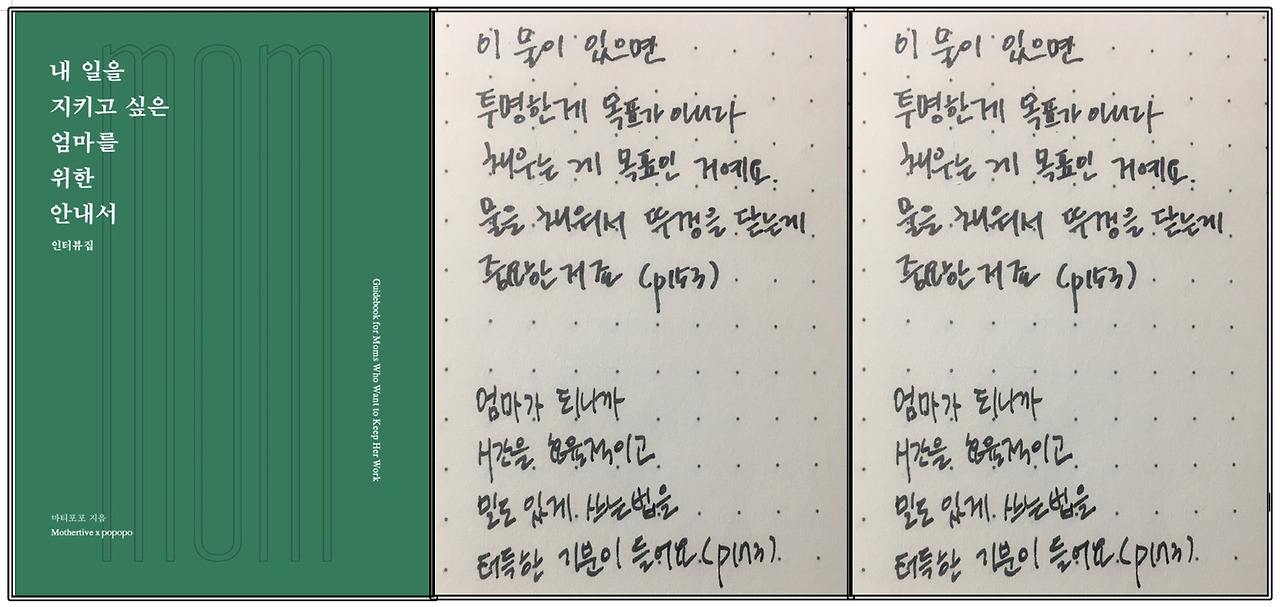 내 일을
지키고 싶은
엄마를
위한
안내서
인터뷰집
mom
Guidebook for Moms Who Want to Keep Her Work
마티포포 지음
Mothertive x popopo
이 물이 있으면
투명한게 목표가 아니라
채우는 게 목표인 거예요.
물을 채워서 뚜껑을 닫는게
중요한거죠 (p153)
엄마가 되니까
시간을 효율적이고
밀도 있게 쓰는법을
터득한 기분이 들어요.(p173)
이 물이 있으면
투명한게 목표가 아니라
채우는 게 목표인 거예요.
물을 채워서 뚜껑을 닫는게
중요한거죠 (p153)
엄마가 되니까
시간을 효율적이고
밀도 있게 쓰는법을
터득한 기분이 들어요.(p173)